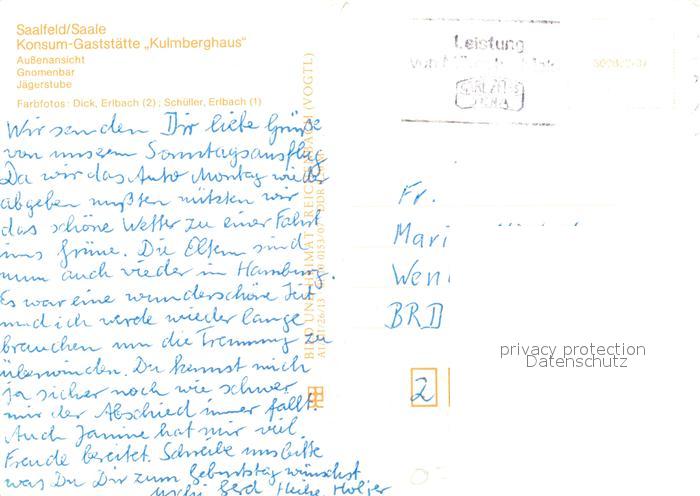 Saalfeld/Saale
Konsum-Gaststätte „Kulmberghaus"
Außenansicht
Gnomenbar
Jägerstube
Farbfotos: Dick, Erlbach (2); Schüller, Erlbach (1)
Wir senden Dir liebe Grüße
von unserem Sonntagsausflug
Da wir das Auto Montag wieder
abgeben mußten nützten wir
das schöne Wetter zu einer Fahrt
ins Grüne. Die Eltern sind
nun auch wieder in Hamburg.
Es war eine wunderschöne Zeit
und ich werde wieder lange
brauchen um die Trennung zu
überwinden. Du kennst mich
ja sicher noch wie schwer
mir der Abschied immer fällt.
Auch Janine hat mir viel
Freude bereitet. Schreibe uns bitte
was Du Dir zum Geburtstag wünschst
Uschi Gerd Heike Holger
BILD UND HEIMAT REICHENBACH (VOGTL)
Leistung
CARL ZEISS
JENA
Fr.
Mari
Wen
BRD
2
privacy protection
Datenschutz